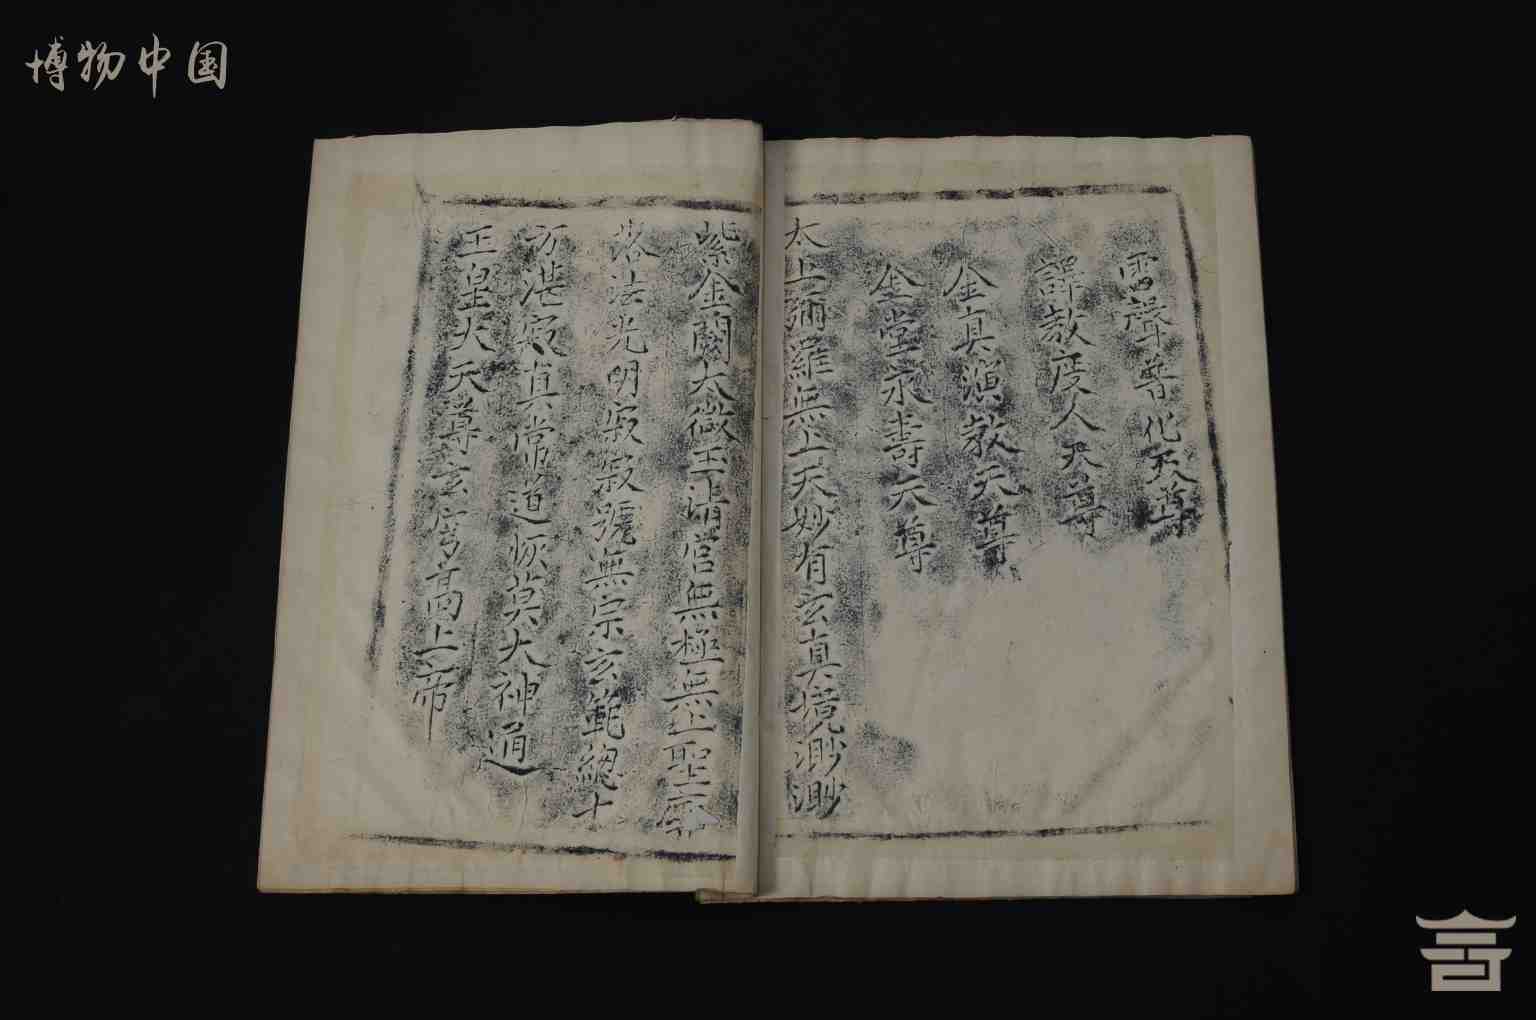 博物中国
雷聲普化天尊
譯教度人天尊
金真演教天尊
金堂永壽天尊
太上彌羅無上天妙有玄真境渺渺
紫金闕太微玉清宫無極無上聖廓
落法光明寂寂號無宗玄範總十
方湛寂真常道恢莫大神通
玉皇大天尊玄穹高上帝